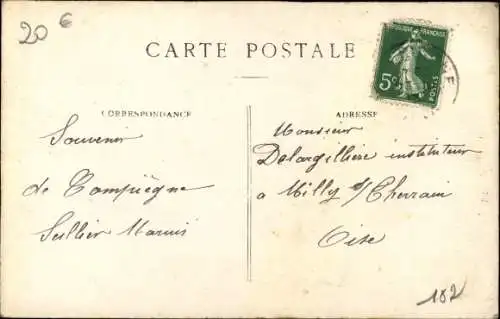 20 €
CARTE POSTALE
REPUBLIQUE FRANCAISE
5c
POSTES
CORRESPONDANCE
ADRESSE
Souvenir
de Compiègne
Sellier Marius
Monsieur
Delargillière instituteur
a Milly s/ Therrain
Oise
182